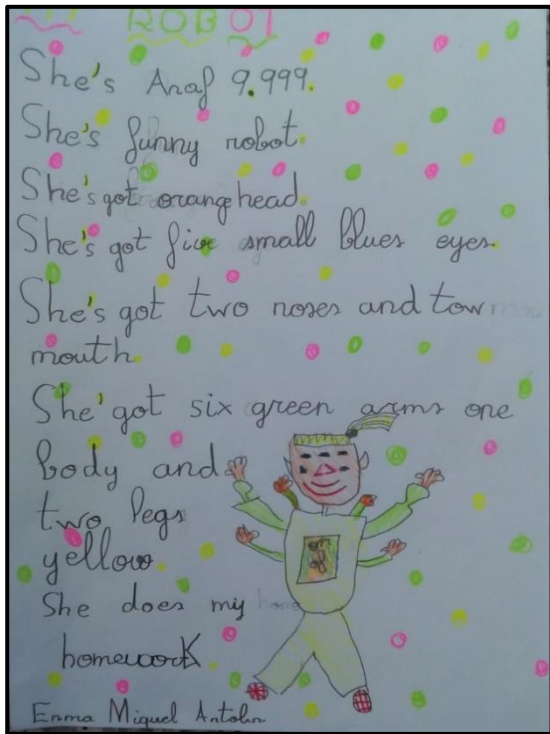 MY ROBOT
She's Anaf 9.999.
She's funny robot.
She's got orange head.
She's got five small blues eyes.
She's got two noses and tow
mouth.
She'got six green arms one
body and
two legs
yellow.
She does my
homework.
on
of
Emma Miguel Antolín